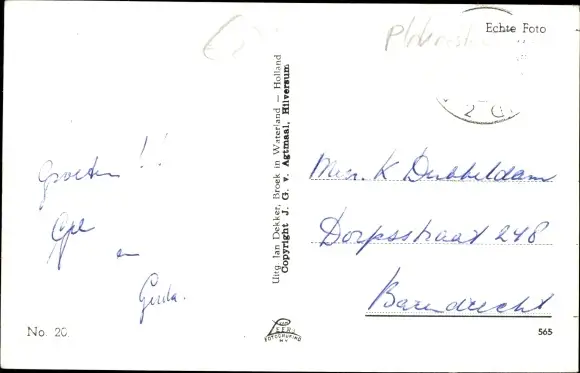 Echte Foto
Groeten !!
en
Gerda.
Uitg. Jan Dekker, Broek in Waterland — Holland
Copyright J. G. v. Agtmaal, Hilversum
K Dubbeldam
Dorpsstraat 248
Barendrecht
No. 20
565